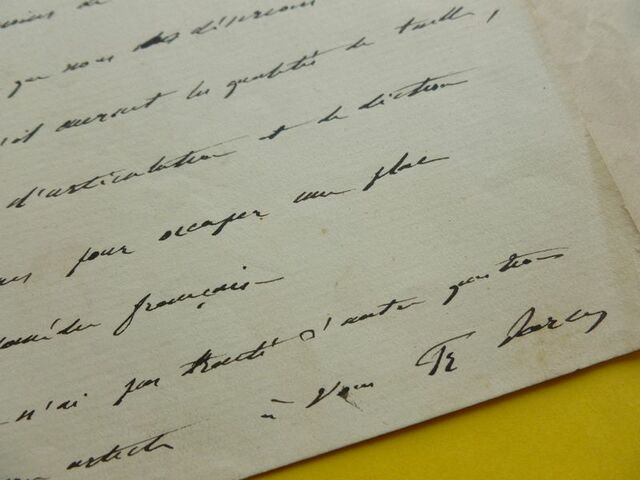 que nous les désirions
les qualités de taille,
d'articulation et de diction
pour occuper une place
français
n'ai pas traité d'autre question
article à vous Fr Sarcey